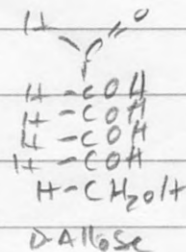 H O
C
H - COH
H - COH
H - COH
H - COH
H - CH2OH
D-Allose